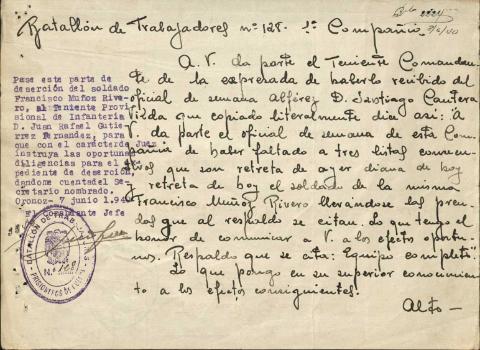 Batallón de Trabajadores nº 128. 1ª Compañía
A. V. da parte el Teniente Comandan-
te de la expresada de haberlo recibido del
oficial de semana Alférez D. Santiago Cantera
que copiado literalmente dice así: "A
V. da parte el oficial de semana de esta Com-
pañía de haber faltado a tres listas consecu-
tivas que son retreta de ayer diana de hoy
y retreta de hoy el soldado de la misma
Francisco Muñoz Rivero llevándose las pren-
das que al respaldo se citan. Lo que tengo el
honor de comunicar a V. a los efectos oportu-
nos. Respaldo que se cita: Equipo completo".
Lo que pongo en su superior conocimien-
to a los efectos consiguientes.
Alto-
Pase este parte de
deserción del soldado
Francisco Muñoz Rive-
ro, al Teniente Provi-
sional de Infanteria
D. Juan Rafael Gutie-
rrez Fernandez, para
que con el caracter de Juez
instruya las oportunas
diligencias para el ex-
pediente de deserción
dandome cuenta del Se-
cretario nombrado.
Oronoz- 7 junio 1.94
El Comandante Jefe
BATALLÓN DE TRABAJADORES
Nº 128
PRISIONEROS DE GUERRA